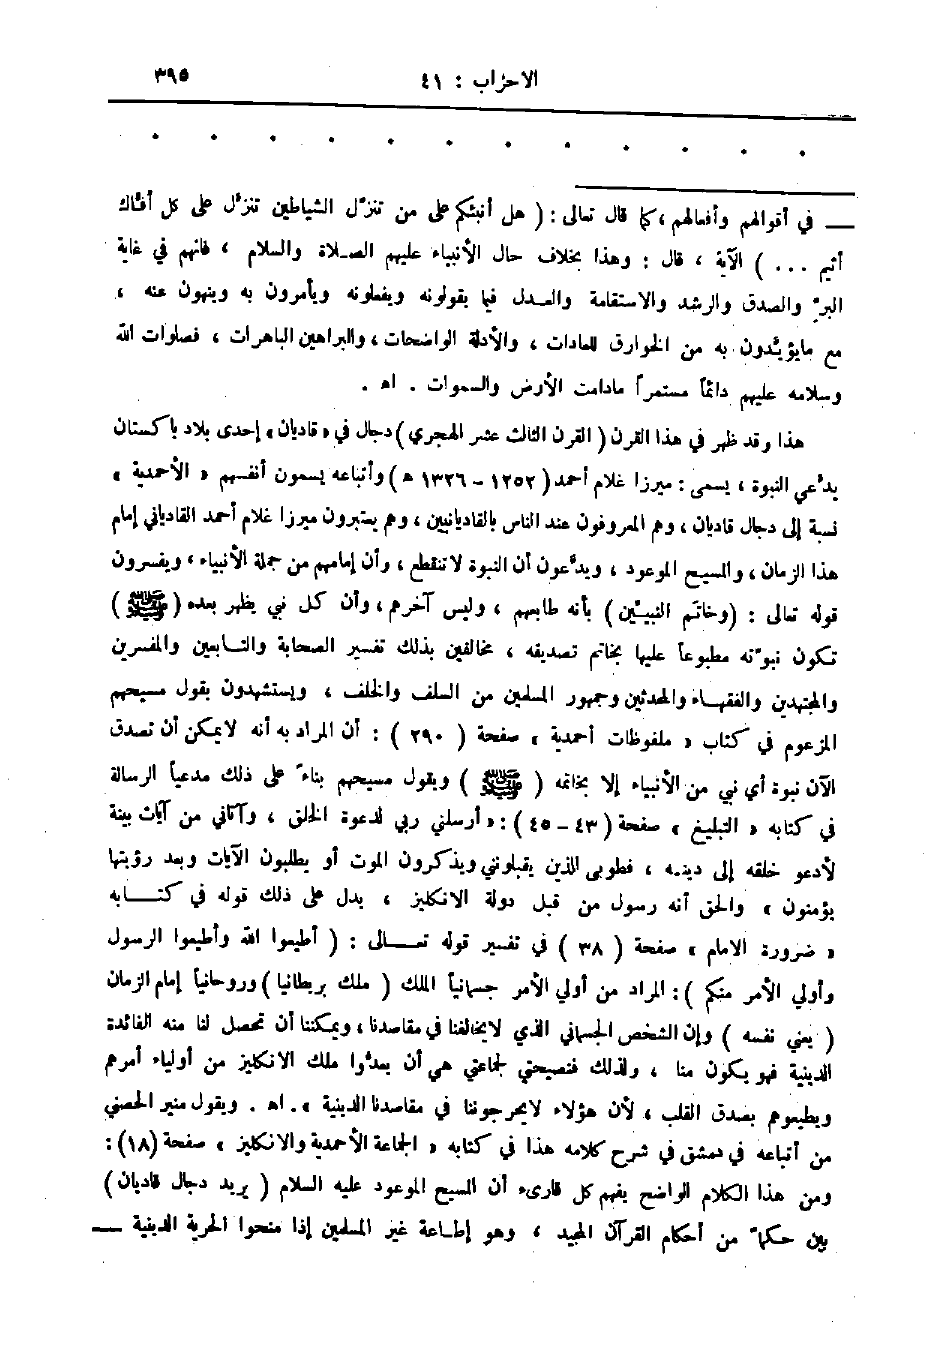 الاحزاب : ٤١ ٣٩٥
ــ في أقوالهم وأفعالهم ، كما قال تعالى : ( هل أنبئكم على من تنزّل الشياطين تنزّل على كل أفّاك
أثيم ... ) الآية ، قال : وهذا بخلاف حال الأنبياء عليهم الصلاة والسلام ، فانهم في غاية
البرّ والصدق والرشد والاستقامة والعدل فيما يقولونه ويفعلونه ويأمرون به وينهون عنه ،
مع مايؤيّدون به من الخوارق للعادات ، والأدلة الواضحات ، والبراهين الباهرات ، فصلوات الله
وسلامه عليهم دائماً مستمراً مادامت الأرض والسموات . اهـ .
هذا وقد ظهر في هذا القرن ( القرن الثالث عشر الهجري ) دجال في « قاديان » إحدى بلاد باكستان
يدّعي النبوة ، يسمى : ميرزا غلام أحمد ( ١٢٥٢ - ١٣٢٦ هـ ) وأتباعه يسمون أنفسهم « الأحمدية »
نسبة إلى دجال قاديان ، وهم المعروفون عند الناس بالقاديانيين ، وهم يعتبرون ميرزا غلام أحمد القادياني إمام
هذا الزمان ، والمسيح الموعود ، ويدّعون أن النبوة لاتنقطع ، وأن إمامهم من جملة الأنبياء ، ويفسرون
قوله تعالى : ( وخاتم النبيّين ) بأنه طابعهم ، وليس آخرهم ، وأن كل نبي يظهر بعده ( ﷺ )
تكون نبوّته مطبوعاً عليها بخاتم تصديقه ، مخالفين بذلك تفسير الصحابة والتابعين والمفسرين
والمجتهدين والفقهاء والمحدثين وجمهور المسلمين من السلف والخلف ، ويستشهدون بقول مسيحهم
المزعوم في كتاب « ملفوظات أحمدية » صفحة ( ٢٩٠ ) : أن المراد به أنه لايمكن أن تصدق
الآن نبوة أي نبي من الأنبياء إلا بخاتمه ( ﷺ ) ويقول مسيحهم بناءً على ذلك مدعياً الرسالة
في كتابه « التبليغ » صفحة ( ٤٣ - ٤٥ ) : « أرسلني ربي لدعوة الخلق ، وآتاني من آيات بينة
لأدعو خلقه إلى دينه ، فطوبى الذين يقبلونني ويذكرون الموت أو يطلبون الآيات وبعد رؤيتها
يؤمنون » والحق أنه رسول من قبل دولة الانكليز ، يدل على ذلك قوله في كتابه
« ضرورة الامام » صفحة ( ٣٨ ) في تفسير قوله تعالى : ( أطيعوا الله وأطيعوا الرسول
وأولي الأمر منكم ) : المراد من أولي الأمر جسمانياً الملك ( ملك بريطانيا ) وروحانياً إمام الزمان
( يعني نفسه ) وإن الشخص الجسماني الذي لايخالفنا في مقاصدنا ، ويمكننا أن تحصل لنا منه الفائدة
الدينية فهو يكون منا ، ولذلك فنصيحتي لجماعتي هي أن يعدّوا ملك الانكليز من أولياء أمرهم
ويطيعوهم بصدق القلب ، لأن هؤلاء لايحرجوننا في مقاصدنا الدينية » . اهـ . ويقول منير الحصني
من أتباعه في دمشق في شرح كلامه هذا في كتابه « الجماعة الأحمدية والانكليز » صفحة (١٨) :
ومن هذا الكلام الواضح يفهم كل قارىء أن المسيح الموعود عليه السلام ( يريد دجال قاديان )
بين حكماً من أحكام القرآن المجيد ، وهو إطاعة غير المسلمين إذا منحوا الحرية الدينية ــ